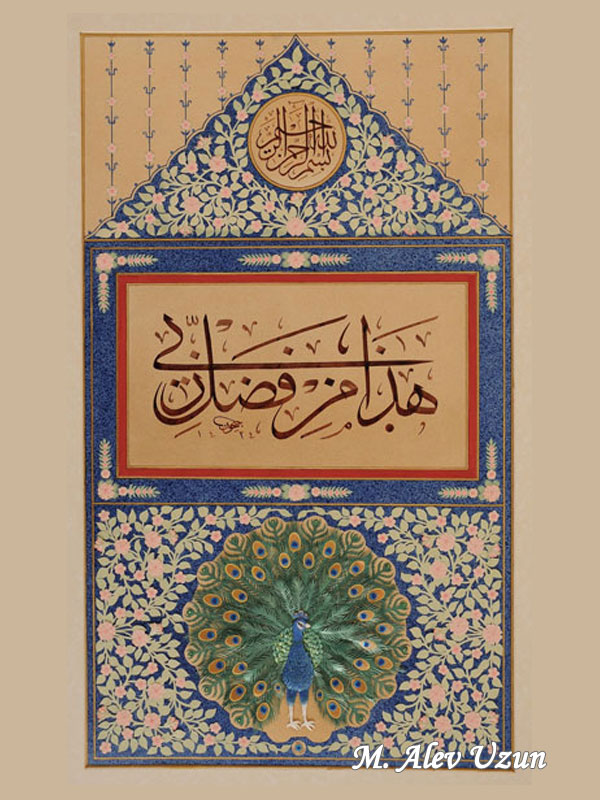 بسم الله الرحمن الرحيم
هَذَا مِنْ فَضْلِ رَبِّي
١٤٢٤
M. Alev Uzun